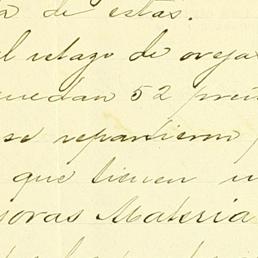 de estas.
el retazo de oveja
quedan 52 pre
se repartieron
que tienen u
soras Materia